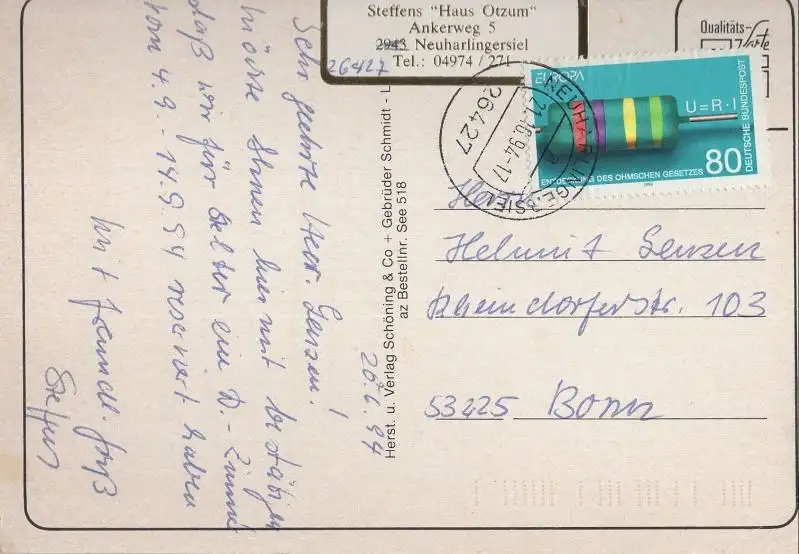 Steffens "Haus Otzum"
Ankerweg 5
2943 Neuharlingersiel
26427
Tel.: 04974 / 271
Qualitäts-
Karte
EUROPA
U=R·I
80
DEUTSCHE BUNDESPOST
ENTDECKUNG DES OHMSCHEN GESETZES
1994
NEUHARLINGERSIEL
21.-6.94-17
a
26427
20.6.94
Sehr geehrter Herr Lenzen!
möchte Ihnen hiermit bestätigen
daß wir für Sie ein D.-Zimmer
vom 4.9. - 14.9.94 reserviert haben
Mit freundl. Gruß
Steffens
Herst. u. Verlag Schöning & Co + Gebrüder Schmidt - L
az Bestellnr. See 518
Herrn
Helmut Lenzen
Rheindorferstr. 103
53225 Bonn